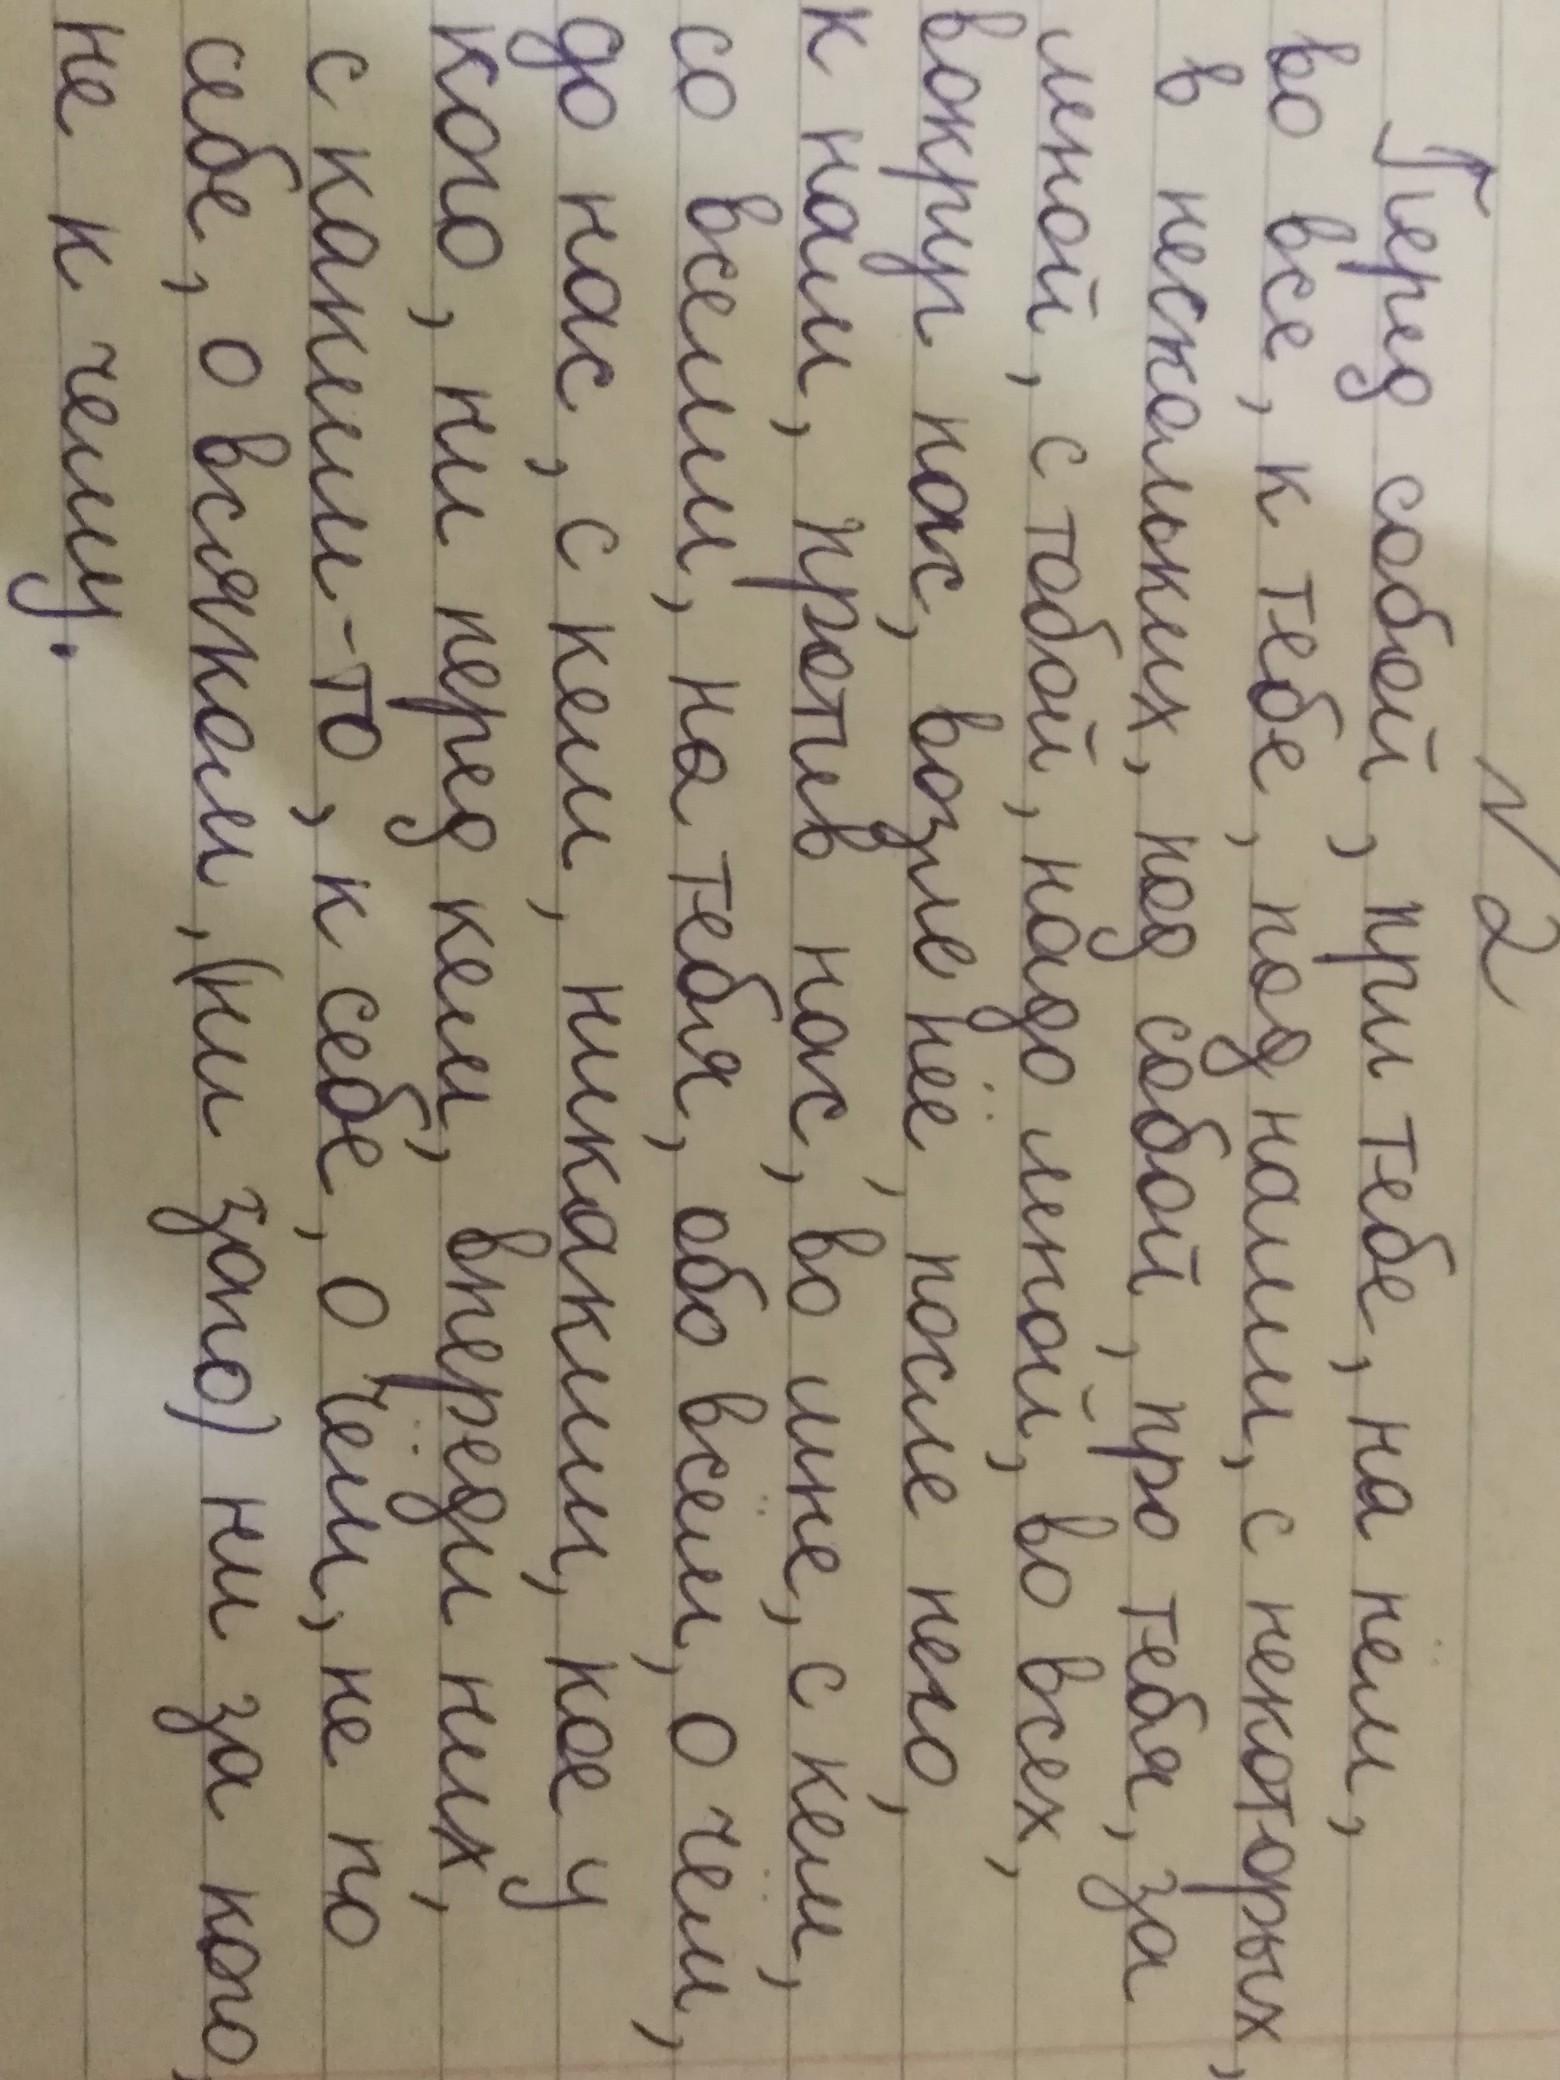 №2
Перед собой, при тебе, на нём,
во все, к тебе, под нами, с некоторых,
в нескольких, под собой, про тебя, за
мной, с тобой, надо мной, во всех,
вокруг нас, возле неё, после него,
к нам, против нас, во мне, с кем,
со всеми, на тебя, обо всём, о чём,
до нас, с кем, никакими, кое у
кого, ни перед кем, впереди них,
с какими-то, к себе, о чём, не по
себе, о всяком, (ни заго) ни за кого,
не к чему.